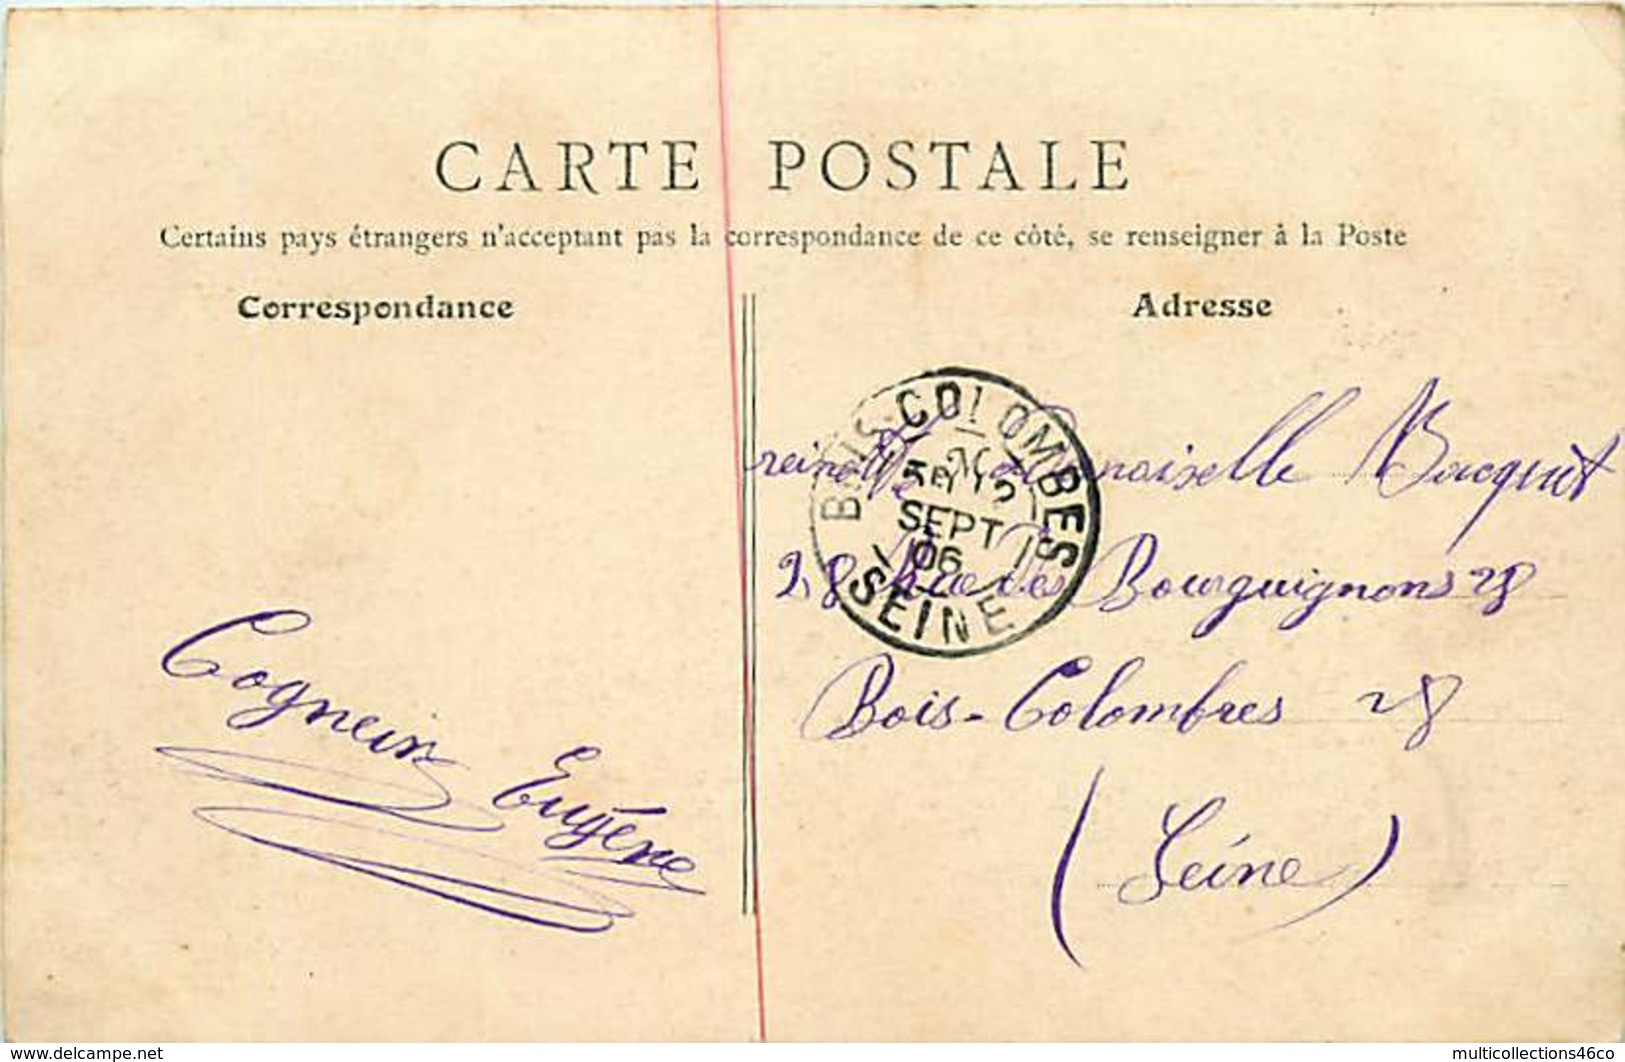 CARTE POSTALE
Certains pays étrangers n'acceptant pas la correspondance de ce côté, se renseigner à la Poste
Correspondance
Adresse
BOIS-COLOMBES
SEPT
06
SEINE
Bacquet
28 Rue des Bourguignons 28
Bois-Colombres 28
(Seine)
Cognein
Eugène
www.delcampe.net
multicollections46co